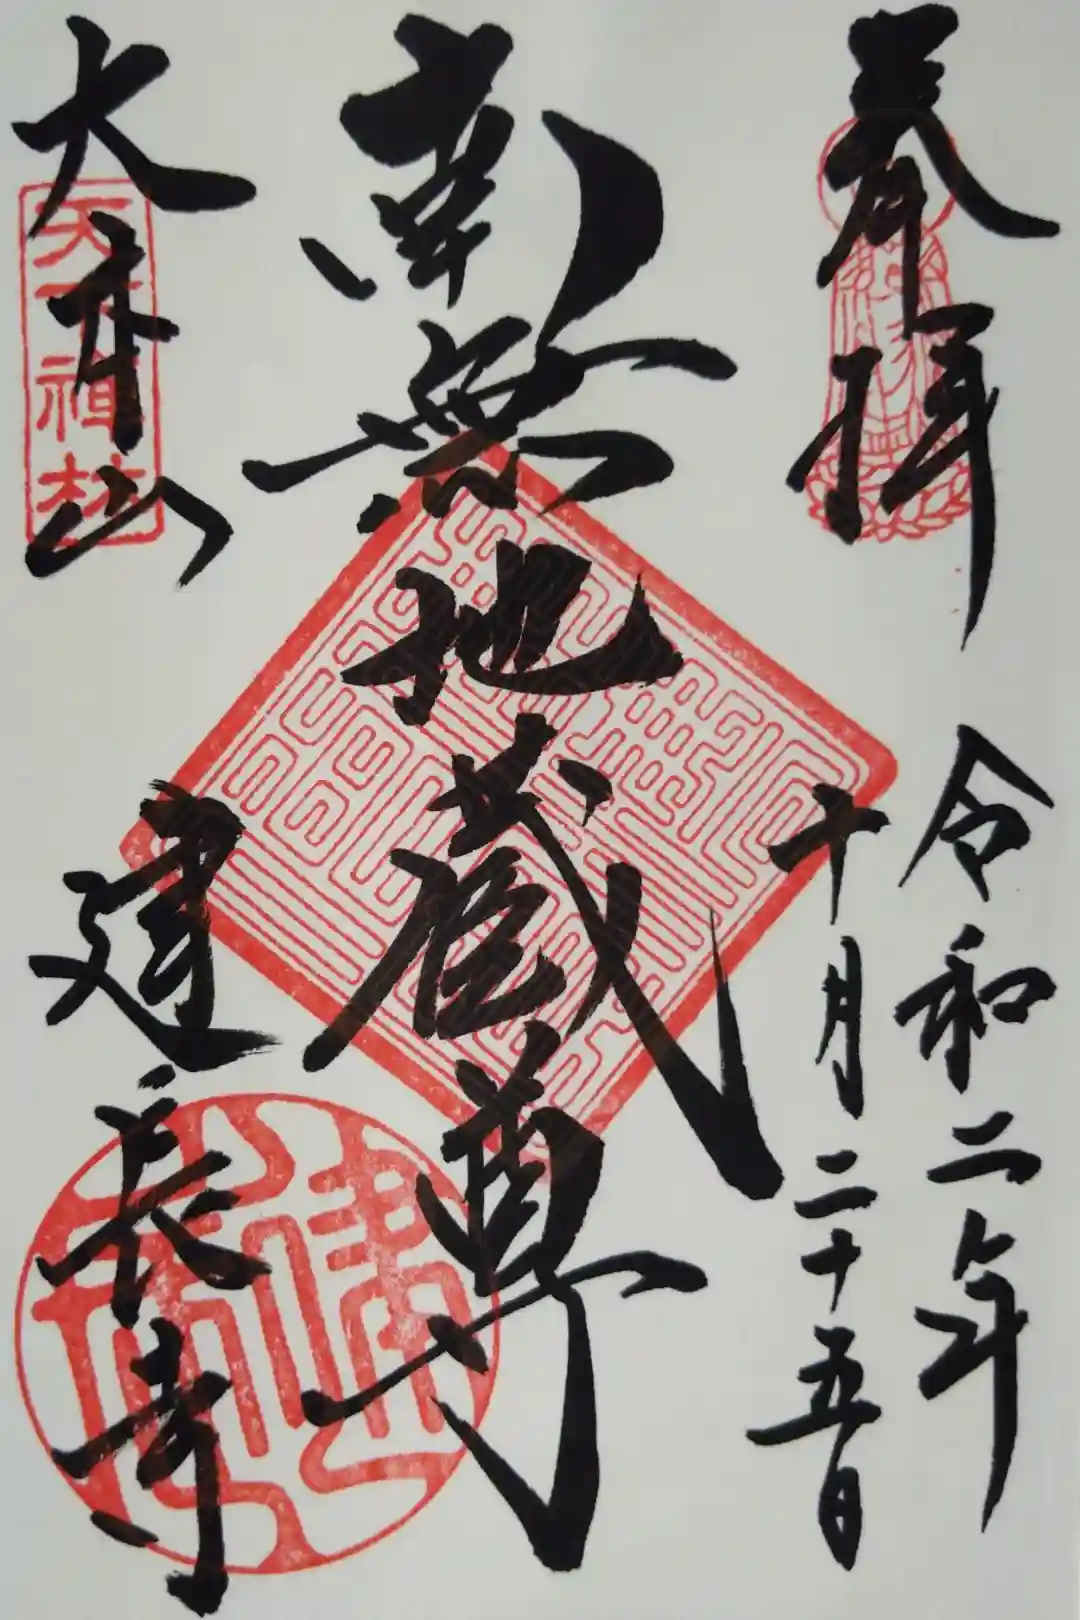 奉拝
令和二年
十月二十五日
南無地蔵尊
大本山
建長寺
天下禅林